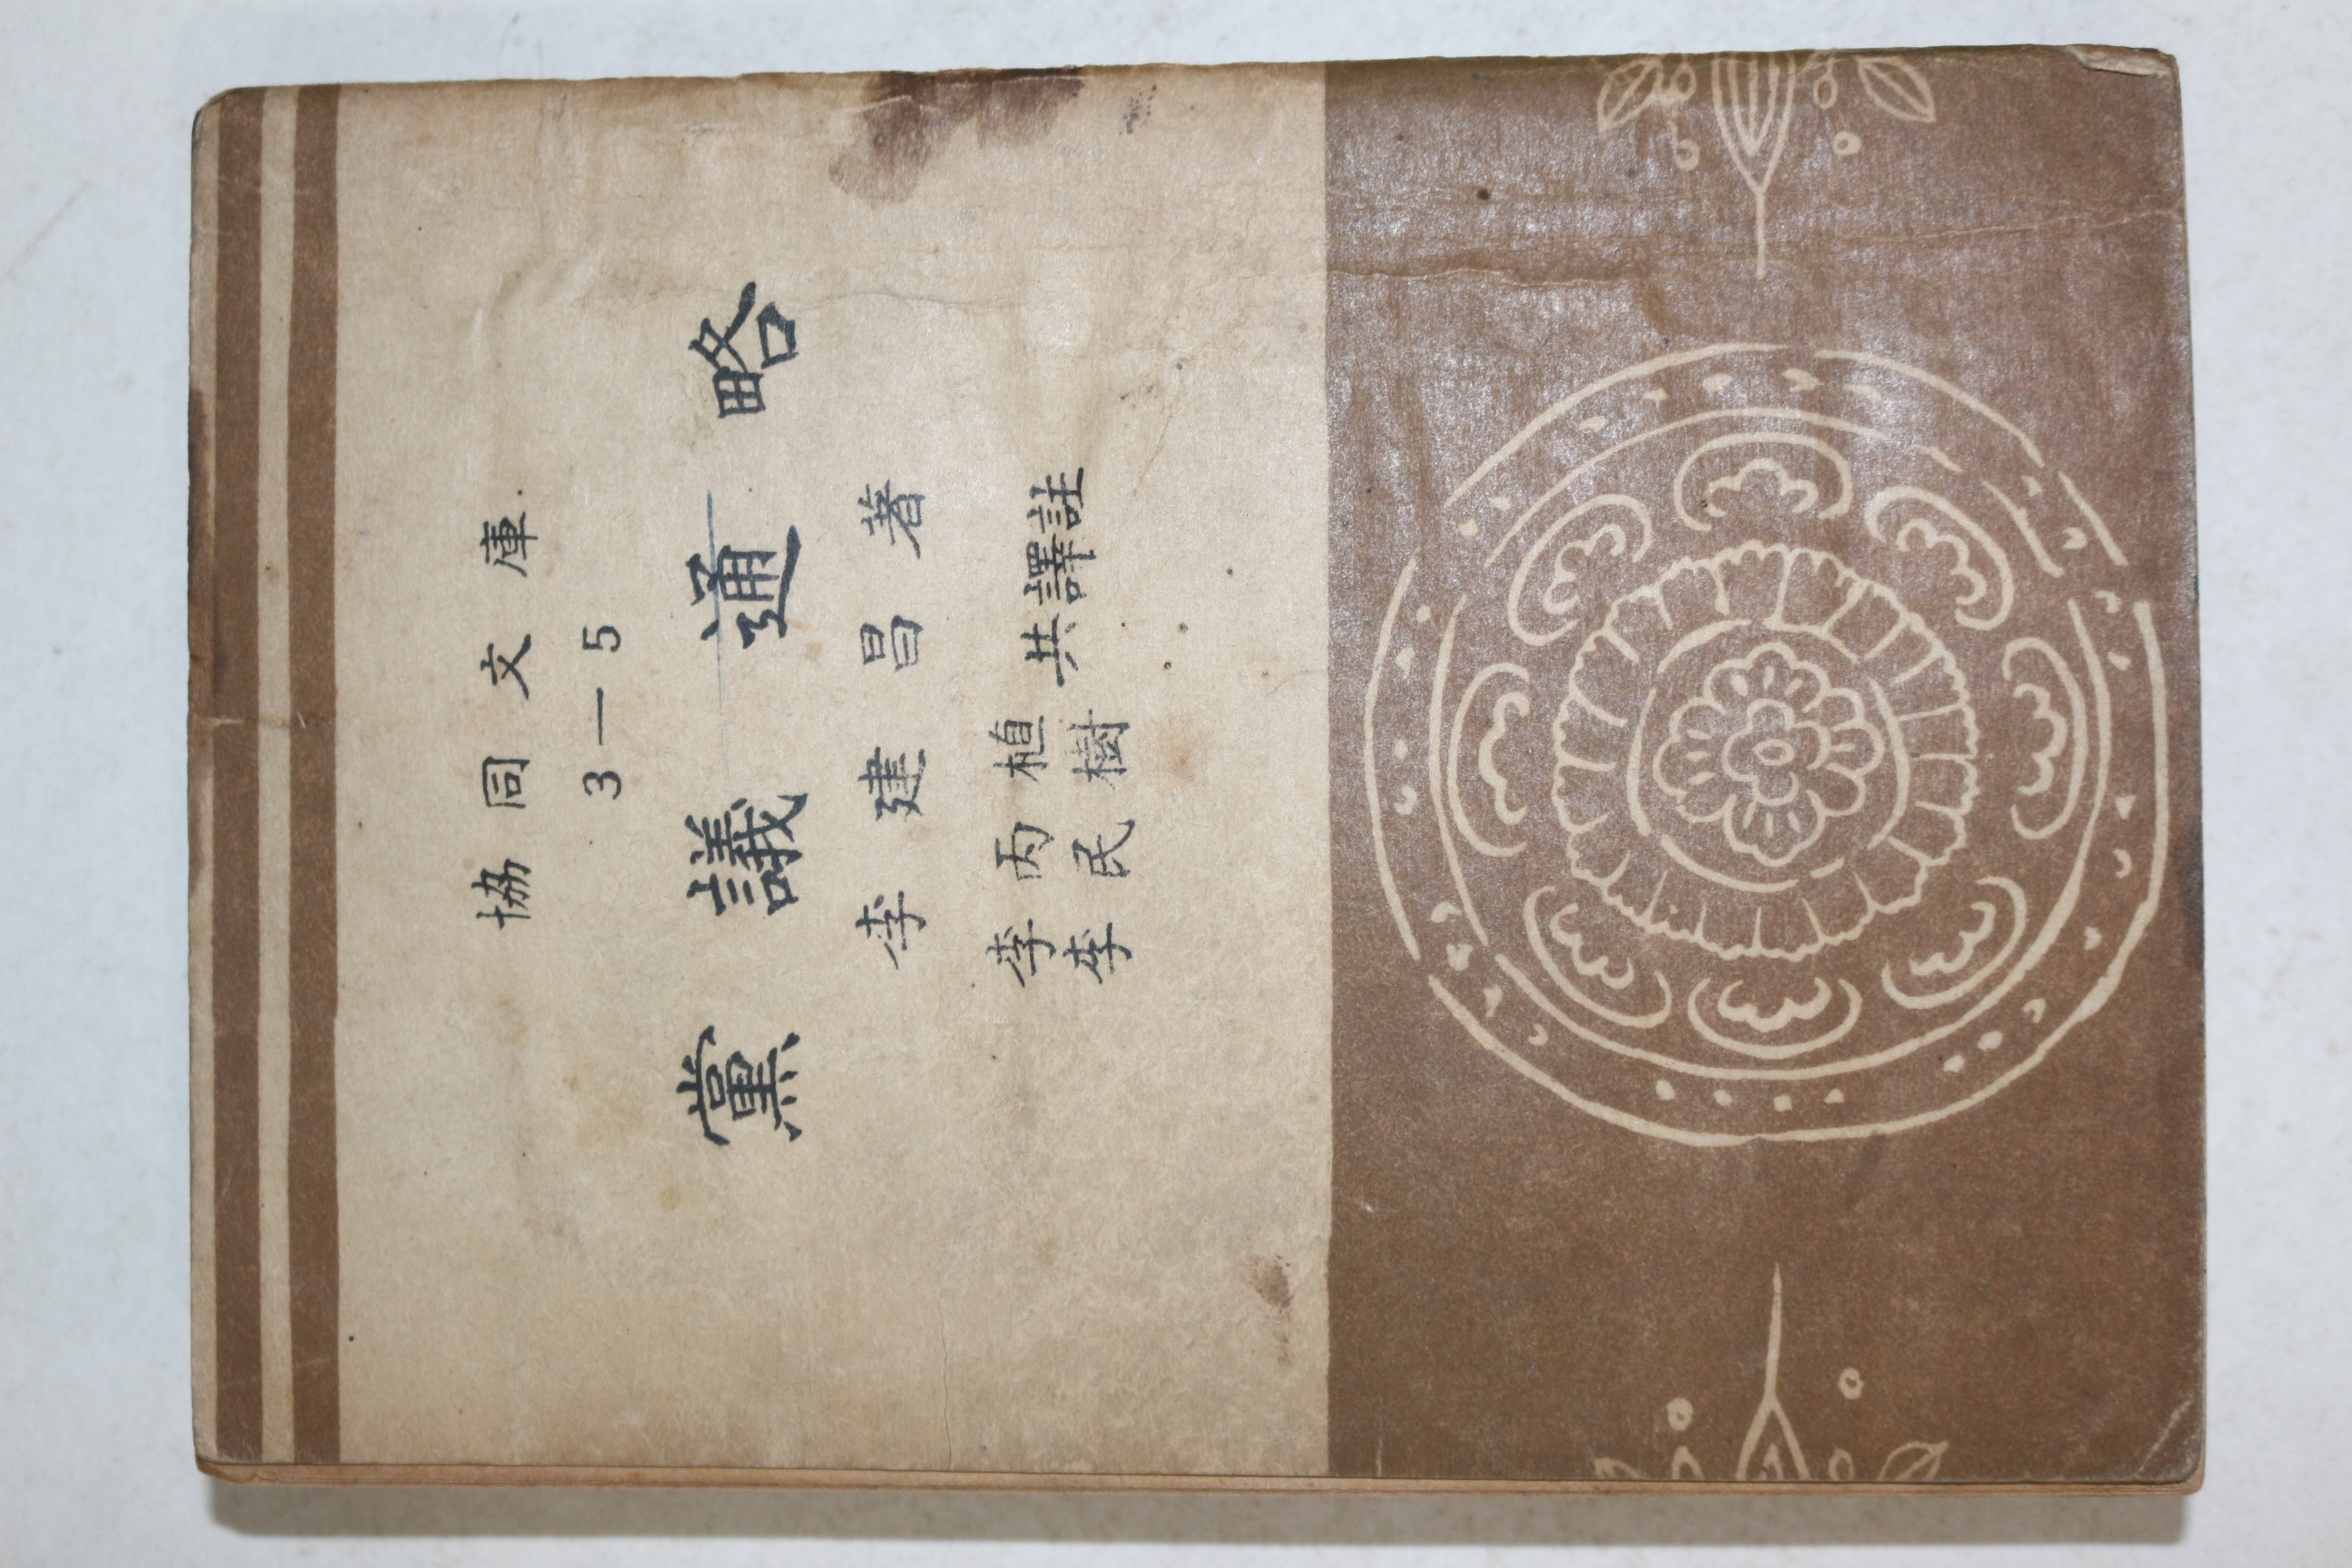 協同文庫
3—5
黨議通略
李建昌著
李丙植
李民樹
共譯註